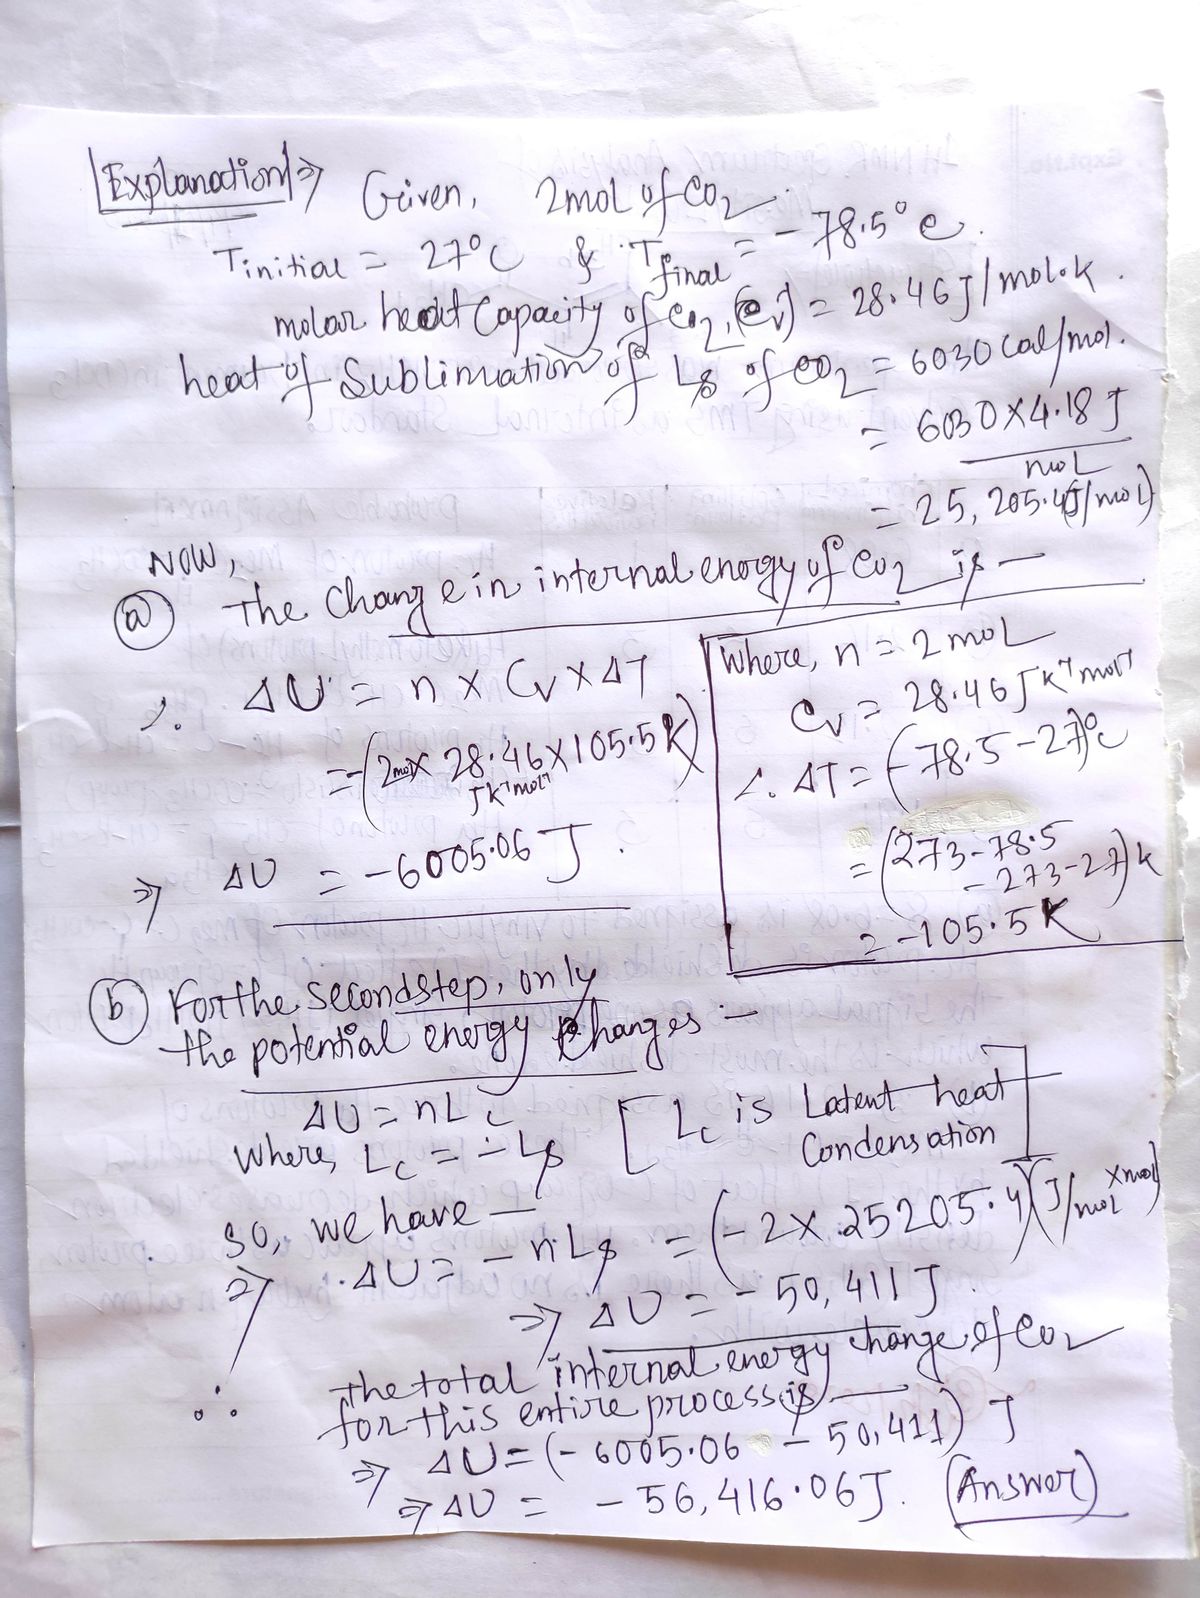 Explanation ⇒ Given, 2 mol of CO2
Tinitial = 27°C & Tfinal = -78.5°C.
molar heat Capacity of CO2, (Cv) = 28.46 J/mol.K.
heat of Sublimation of Ls of CO2 = 6030 Cal/mol.
= 6030 X 4.18 J
mol
= 25,205.4 (J/mol)
NOW,
(a) The Change in internal energy of CO2 is —
∴ ΔU = n x Cv x ΔT
= -(2 mol x 28.46 x 105.5 K)
J K⁻¹ mol⁻¹
⇒ ΔU = -6005.06 J.
Where, n = 2 mol
Cv = 28.46 J K⁻¹ mol⁻¹
∴ ΔT = (-78.5 - 27)°C
= (273 - 78.5
- 273 - 27) K
= -105.5 K
(b) For the second step, only
the potential energy changes :-
ΔU = nLc
[Lc is Latent heat
Condensation]
Where, Lc = -Ls
So, we have —
⇒ ΔU = - n Ls = (-2 x 25205.4)(J/mol x mol)
⇒ ΔU = -50,411 J.
∴ The total internal energy change of CO2
for this entire process is —
⇒ ΔU = (-6005.06 - 50,411) J
⇒ ΔU = -56,416.06 J. (Answer)